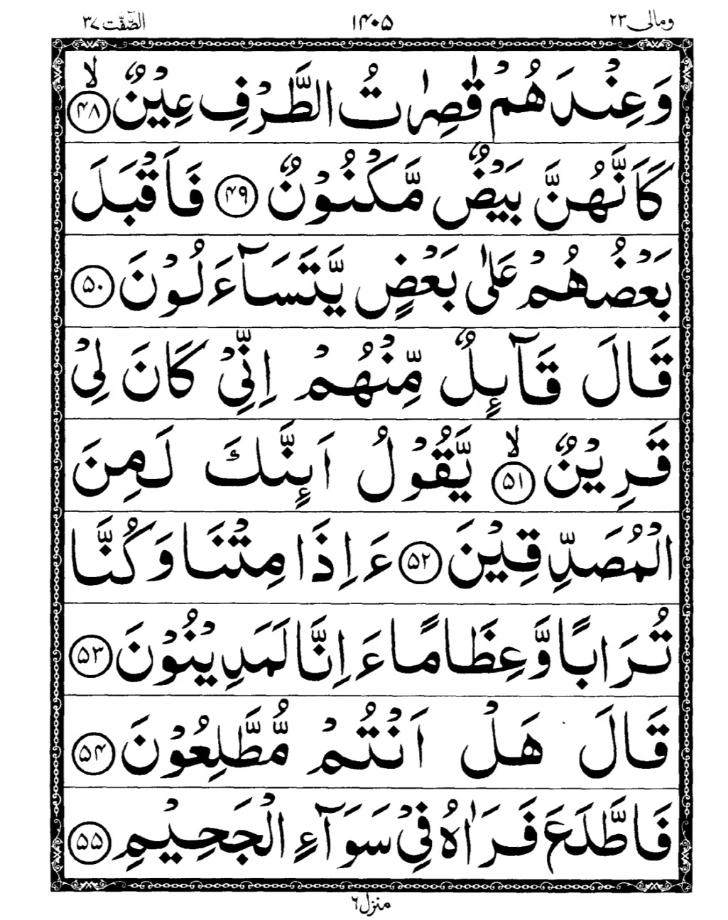 ومالی ۲۳ ۱۴۰۵ الصّٰٓفّٰت ۳۷
وَعِنْدَهُمْ قٰصِرٰتُ الطَّرْفِ عِيْنٌ ۙ‏﴿۴۸﴾
كَاَنَّهُنَّ بَيْضٌ مَّكْنُوْنٌ ﴿۴۹﴾ فَاَقْبَلَ
بَعْضُهُمْ عَلٰى بَعْضٍ يَّتَسَآءَلُوْنَ ﴿۵۰﴾
قَالَ قَآىِٕلٌ مِّنْهُمْ اِنِّىْ كَانَ لِىْ
قَرِيْنٌ ۙ‏﴿۵۱﴾ يَّقُوْلُ اَىِٕنَّكَ لَمِنَ
الْمُصَدِّقِيْنَ ﴿۵۲﴾ ءَاِذَا مِتْنَا وَكُنَّا
تُرَابًا وَّعِظَامًا ءَاِنَّا لَمَدِيْنُوْنَ ﴿۵۳﴾
قَالَ هَلْ اَنْتُمْ مُّطَّلِعُوْنَ ﴿۵۴﴾
فَاطَّلَعَ فَرَاٰهُ فِىْ سَوَآءِ الْجَحِيْمِ ﴿۵۵﴾
منزل ۶